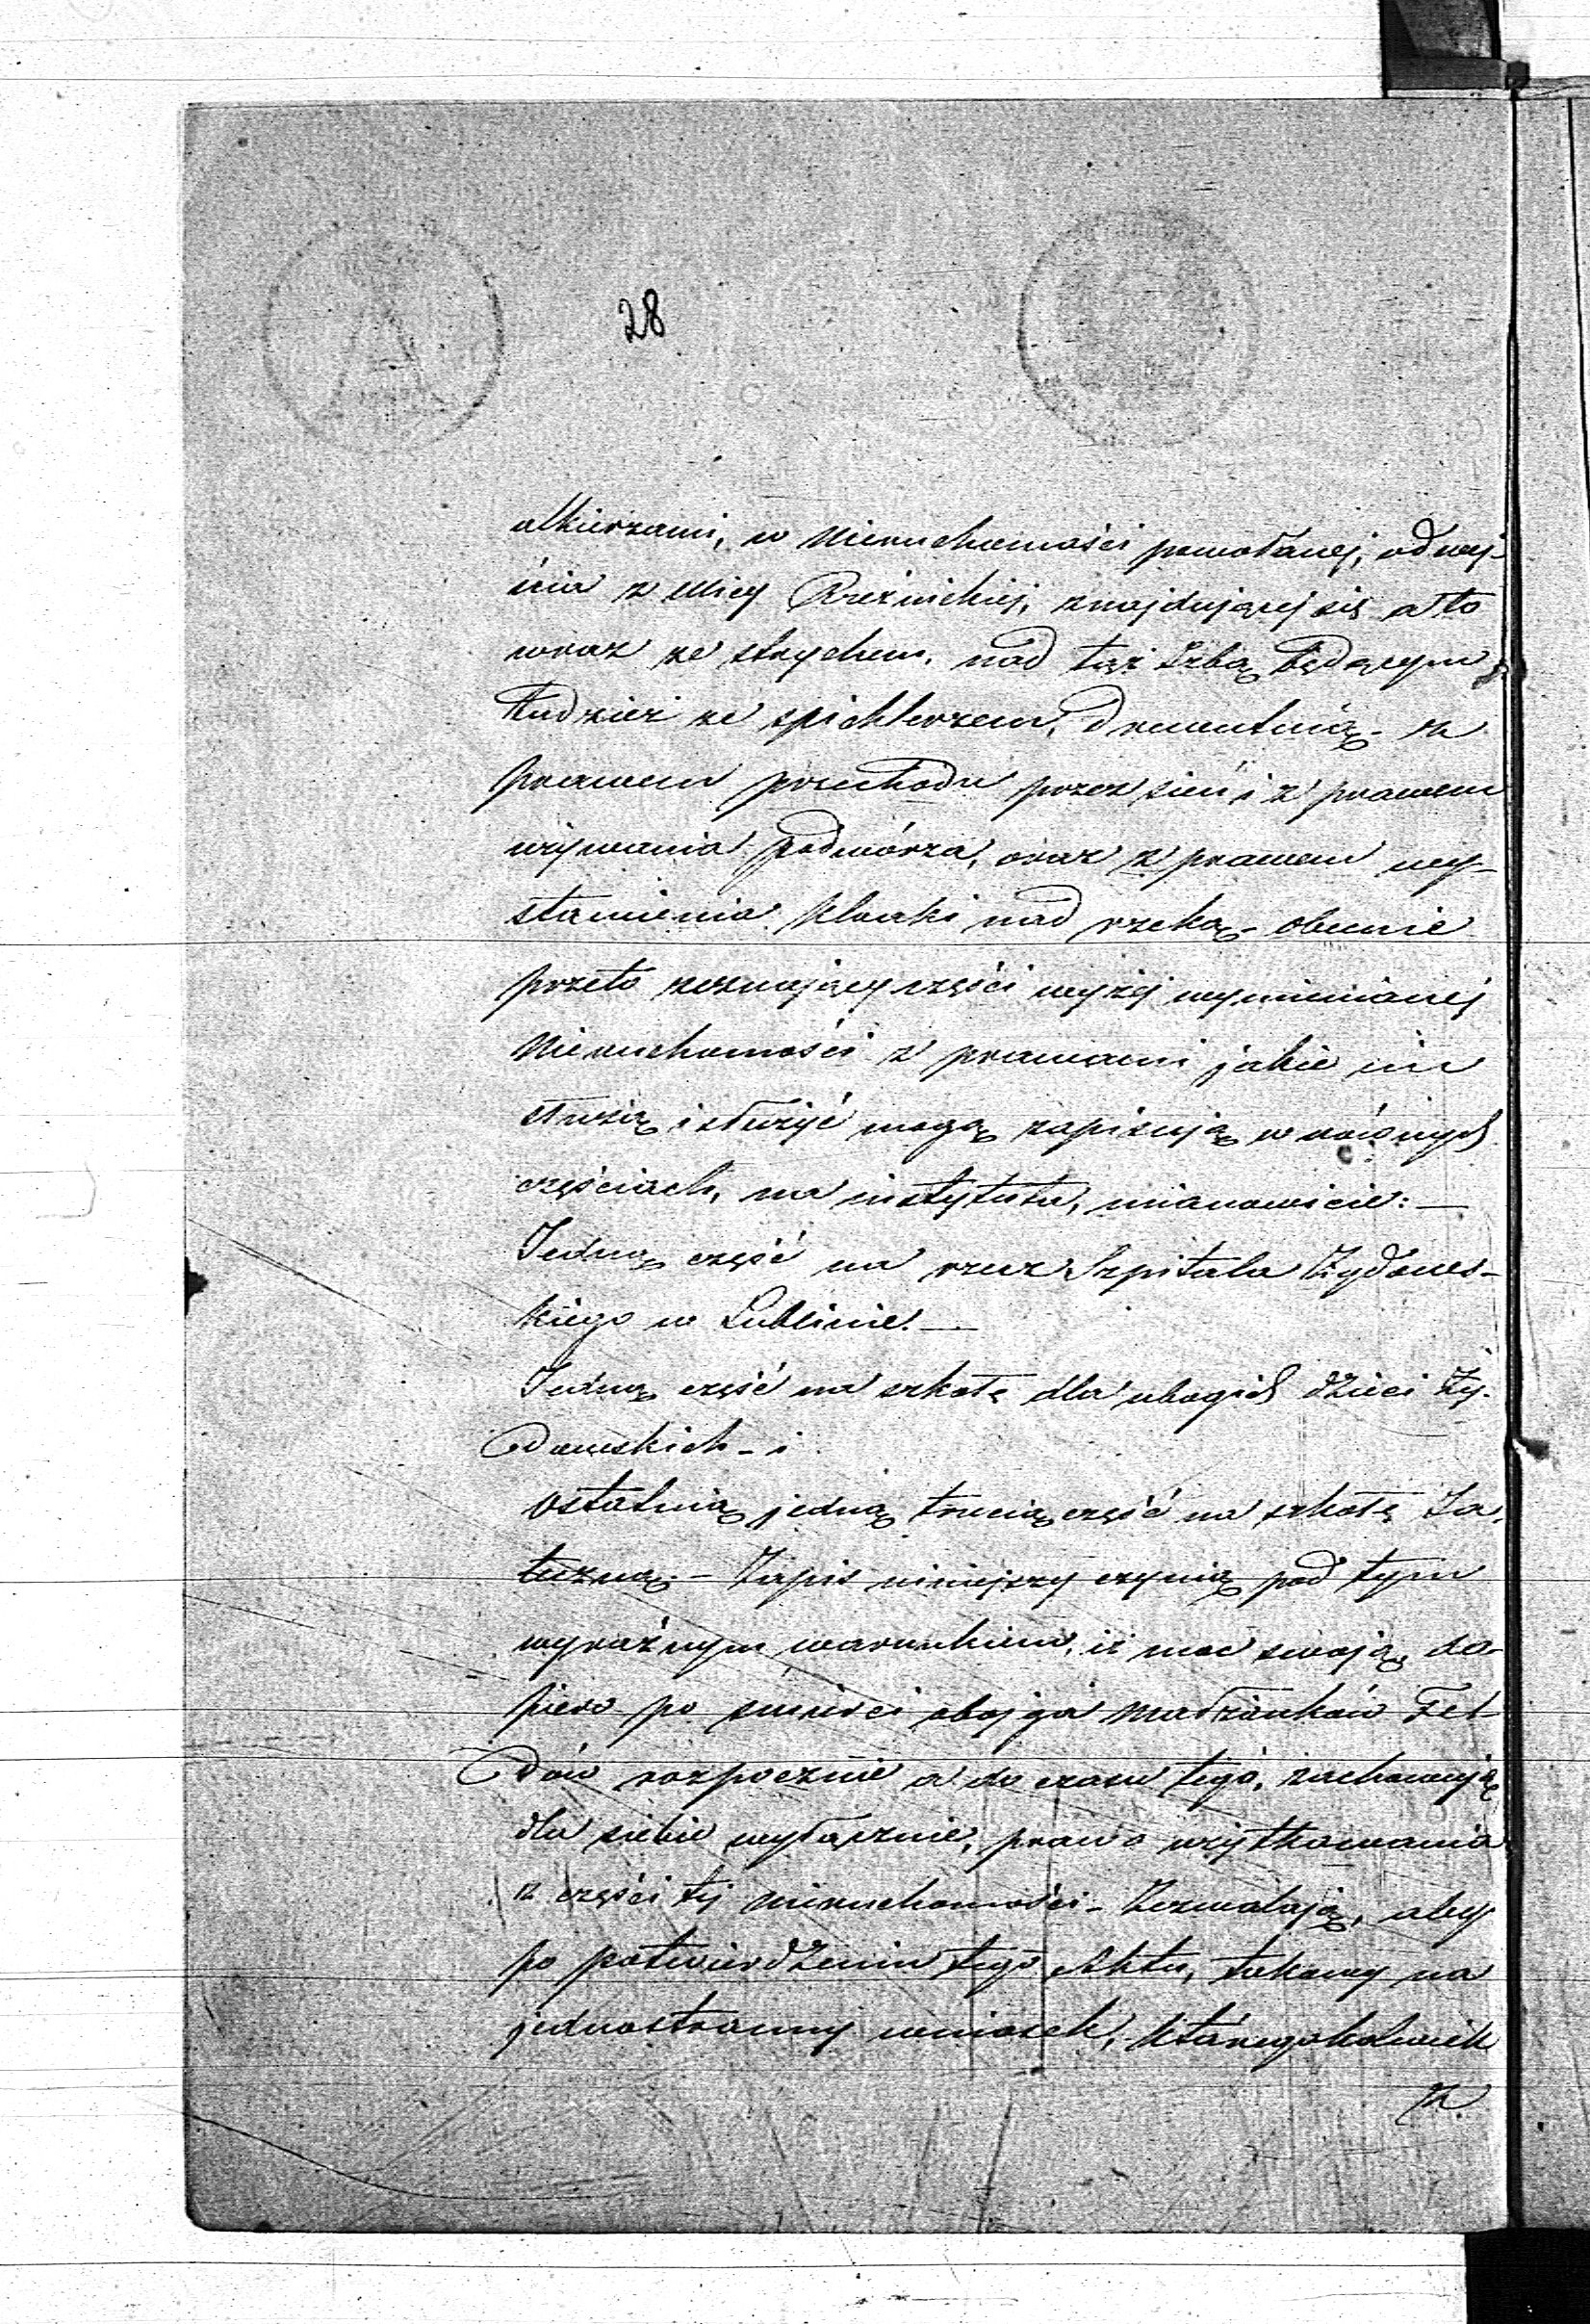 28
alkierzami, w Nieruchomości powołanej, od wej-
ścia z ulicy Rzeźnickiej, znajdującej się a to
wraz ze strychem, nad tąż Izbą będącym,
tudzież ze spichlerzem, drewutnią - z
prawem przechodu przez sień i z prawem
używania podwórza, oraz z prawem wy-
stawienia kloaki nad rzeką - obecnie
przeto zeznający części wyżej wymienianej
Nieruchomości z prawami jakie im
służą i służyć mogą zapisują w równych
częściach, na instytuta, mianowicie: —
Jedną część na rzecz Szpitala Żydows-
kiego w Lublinie. —
Jedną część na szkołę dla ubogich dzieci Ży-
dowskich - i
ostatnią jedną trzecią część na szkołę Ta-
teczną. - Zapis niniejszy czynią pod tym
wyraźnym warunkiem, iż moc swoją do-
piero po śmierci obojga Małżonków Fel-
dów rozpocznie a do czasu tego, zachowują
dla siebie wyłącznie, prawo użytkowania
z części tej nieruchomości - Zezwalają, aby
po potwierdzeniu tego Aktu, takowy na
jednostronny wniosek, któregokolwiek
z